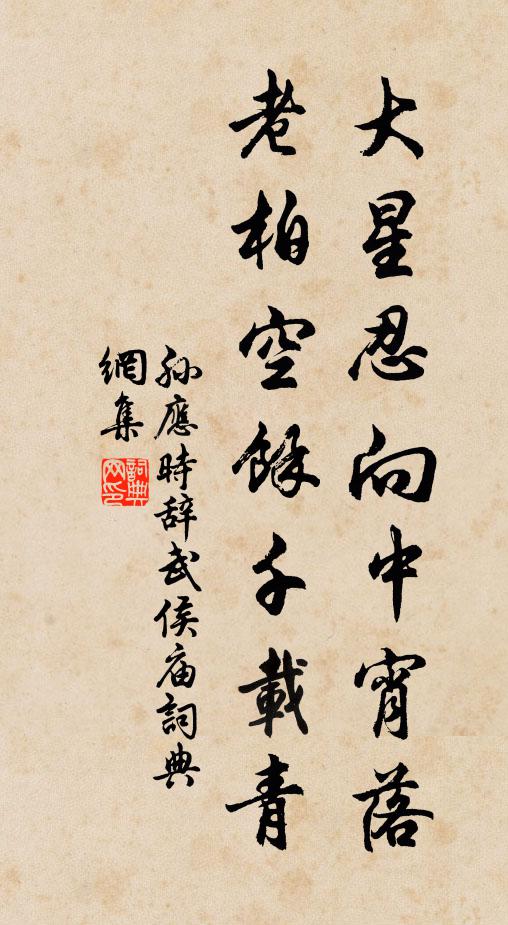 大星忍向中宵落
老柏空餘千載青
孫應時辭武侯庙詞典
網集
詞典网印